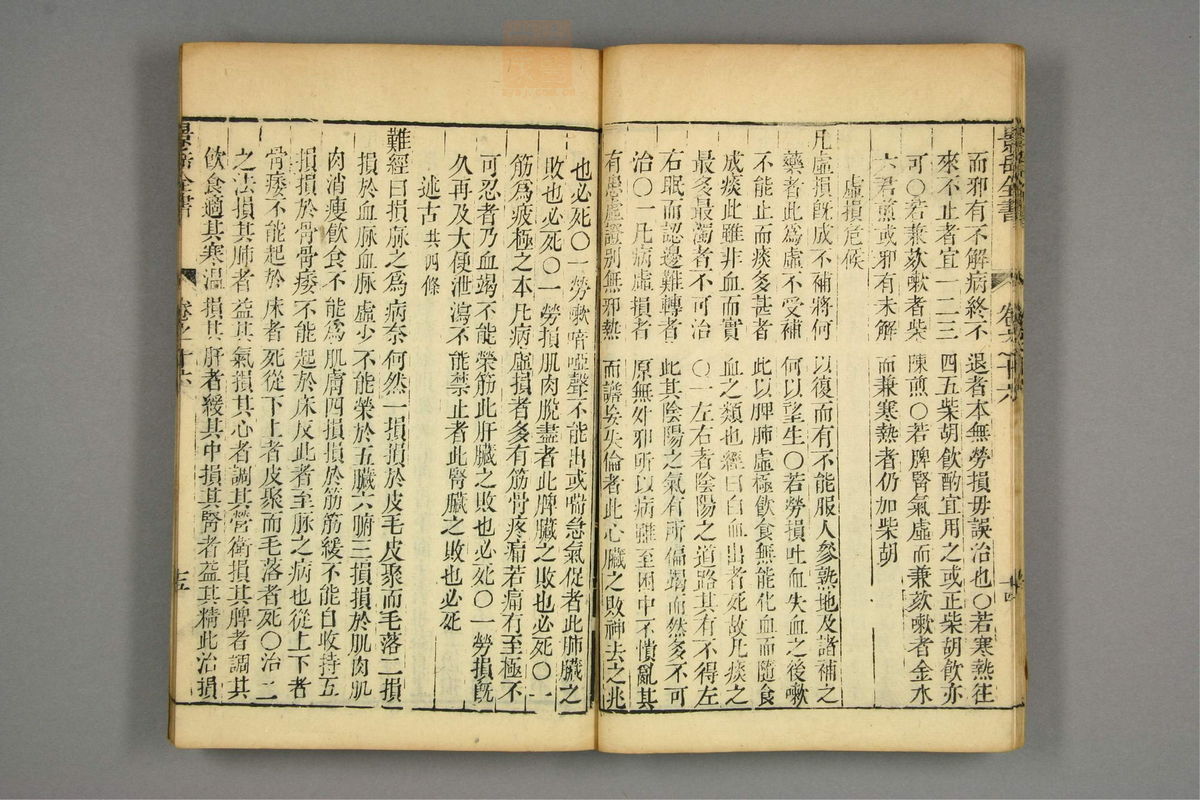 景岳全書
而邪有不解病終不退者本無勞損毋誤治也〇若寒熱往
來不止者宜一二三四五柴胡飲酌宜用之或正柴胡飲亦
可〇若兼欬嗽者柴陳煎〇若脾腎氣虛而兼欬嗽者金水
六君煎或邪有未解而兼寒熱者仍加柴胡
虛損危候
凡虛損旣成不補將何以復而有不能服人參熟地及諸補之
藥者此爲虛不受補何以望生〇若勞損吐血失血之後嗽
不能止而痰多甚者此以脾肺虛極飲食無能化血而隨食
成痰此雖非血而實血之類也經曰白血出者死故凡痰之
最多最濁者不可治〇一左右者陰陽之道路其有不得左
右眠而認邊難轉者此其陰陽之氣有所偏竭而然多不可
治〇一凡病虛損者原無外邪所以病雖至困中不憒亂其
有患虛證別無邪熱而譫妄失倫者此心臟之敗神去之兆
也必死〇一勞嗽喑啞聲不能出或喘急氣促者此肺臟之
敗也必死〇一勞損肌肉脫盡者此脾臟之敗也必死〇一
筋爲疲極之本凡病虛損者多有筋骨疼痛若痛有至極不
可忍者乃血竭不能榮筋此肝臟之敗也必死〇一勞損旣
久再及大便泄瀉不能禁止者此腎臟之敗也必死
述古共四條
難經曰損脉之爲病奈何然一損損於皮毛皮聚而毛落二損
損於血脉血脉虛少不能榮於五臟六腑三損損於肌肉肌
肉消瘦飲食不能爲肌膚四損損於筋筋緩不能自收持五
損損於骨骨痿不能起於床反此者至脉之病也從上下者
骨痿不能起於床者死從下上者皮聚而毛落者死〇治二
之法損其肺者益其氣損其心者調其營衛損其脾者調其
飲食適其寒溫損其肝者緩其中損其腎者益其精此治損
景岳全書
卷之十六
十五